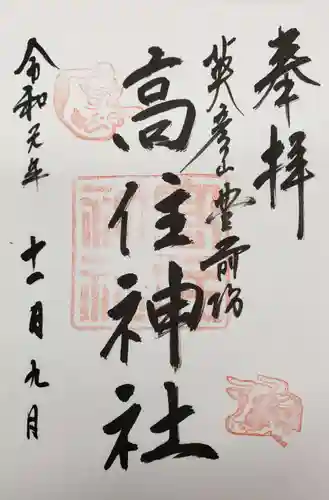 奉拝
英彦山豊前坊
高住神社
令和元年
十一月九月